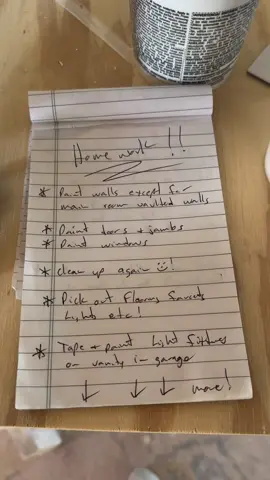 Home work !!
* Paint walls except for
main room vaulted walls
* Paint doors + jambs
* Paint windows
* clean up again ☺!
* Pick out Floors, faucets
Lights etc!
* Tape + paint Light fixtures
on vanity in garage
↓ ↓ ↓ more!